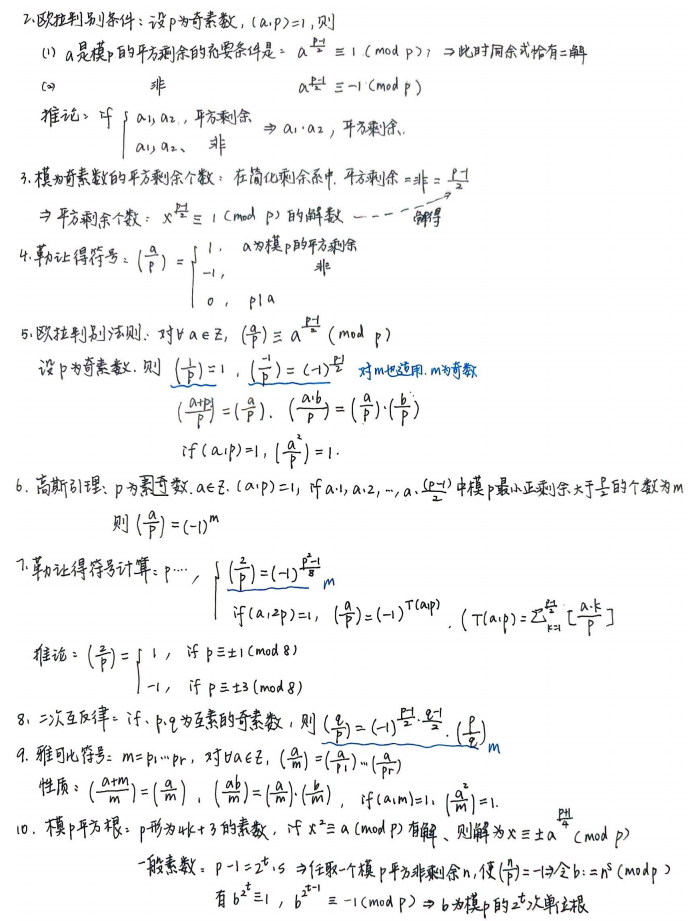 2.欧拉判别条件：设p为奇素数，(a,p)=1，则
(1) a是模p的平方剩余的充要条件是：a^{\frac{p-1}{2}} ≡ 1 (mod p)； ⇒此时同余式恰有二解
(2) 非 a^{\frac{p-1}{2}} ≡ -1 (mod p)
推论：if { a1, a2, 平方剩余 ⇒ a1·a2, 平方剩余.
a1, a2, 非
3.模为奇素数的平方剩余个数：在简化剩余系中，平方剩余=非= \frac{p-1}{2}
⇒平方剩余个数：x^{\frac{p-1}{2}} ≡ 1 (mod p) 的解数 ----→ 解得
4.勒让得符号：(\frac{a}{p}) = { 1, a为模p的平方剩余
-1, 非
0, p|a
5.欧拉判别法则：对∀a∈Z, (\frac{a}{p}) ≡ a^{\frac{p-1}{2}} (mod p)
设p为奇素数，则 (\frac{1}{p})=1, (\frac{-1}{p})=(-1)^{\frac{p-1}{2}} 对m也适用，m为奇数
(\frac{a+p}{p})=(\frac{a}{p}), (\frac{a·b}{p})=(\frac{a}{p})·(\frac{b}{p})
if (a,p)=1, (\frac{a^2}{p})=1.
6.高斯引理：p为素奇数,a∈Z,(a,p)=1, if a·1, a·2, …, a·\frac{(p-1)}{2} 中模p最小正剩余大于\frac{p}{2}的个数为m
则 (\frac{a}{p})=(-1)^m
7.勒让得符号计算：p…, { (\frac{2}{p})=(-1)^{\frac{p^2-1}{8}} m
if (a,2p)=1, (\frac{a}{p})=(-1)^{T(a,p)}. (T(a,p)=∑_{k=1}^{\frac{p-1}{2}} [\frac{a·k}{p}]
推论：(\frac{2}{p})= { 1, if p≡±1 (mod 8)
-1, if p≡±3 (mod 8)
8.二次互反律：if. p,q为互素的奇素数，则 (\frac{q}{p})=(-1)^{\frac{p-1}{2}·\frac{q-1}{2}}·(\frac{p}{q}) m
9.雅可比符号：m=p1…pr, 对∀a∈Z, (\frac{a}{m})=(\frac{a}{p1})…(\frac{a}{pr})
性质：(\frac{a+m}{m})=(\frac{a}{m}), (\frac{ab}{m})=(\frac{a}{m})·(\frac{b}{m}), if (a,m)=1, (\frac{a^2}{m})=1.
10.模p平方根：p形为4k+3的素数，if x²≡a (mod p)有解、则解为x≡±a^{\frac{p+1}{4}} (mod p)
一般素数：p-1=2^t·s ⇒任取一个模p平方非剩余n,使(\frac{n}{p})=-1⇒令b:=n^s (mod p)
有 b^{2^t}≡1, b^{2^{t-1}} ≡ -1 (mod p) ⇒ b为模p的2^t次单位根